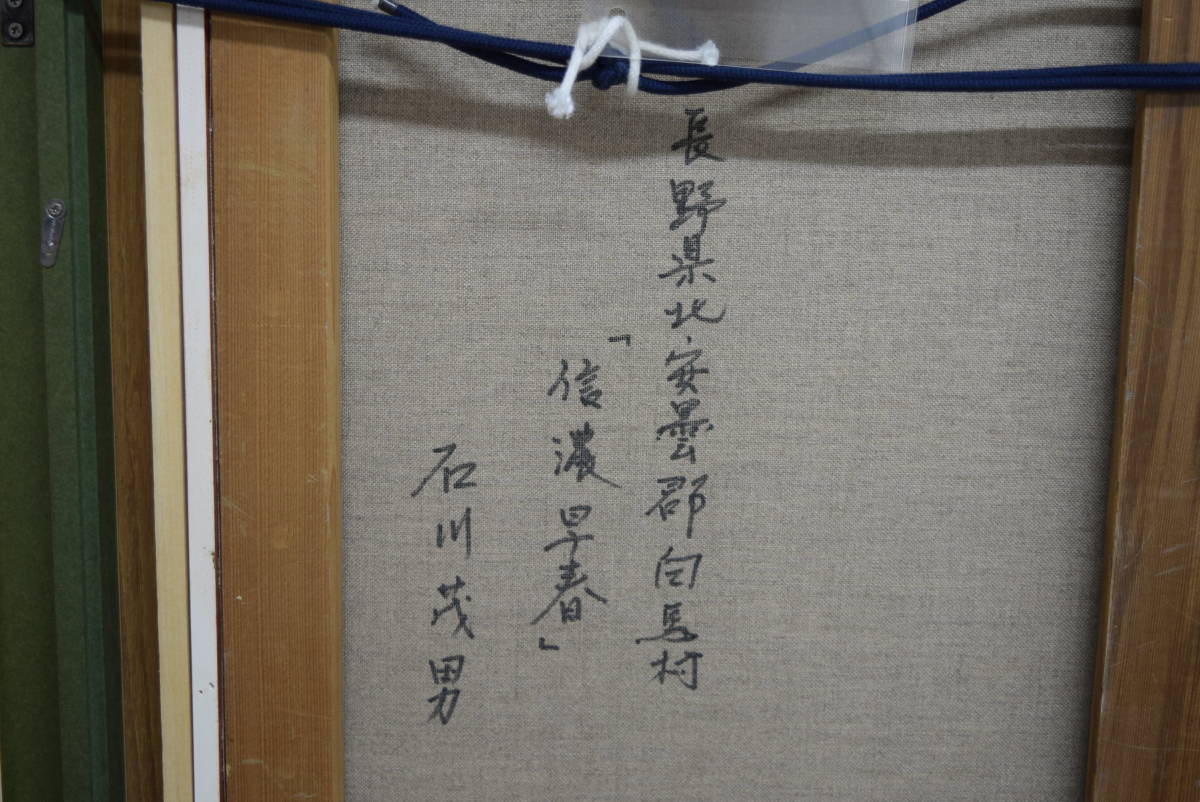 長野県北安曇郡白馬村
「信濃早春」
石川茂男